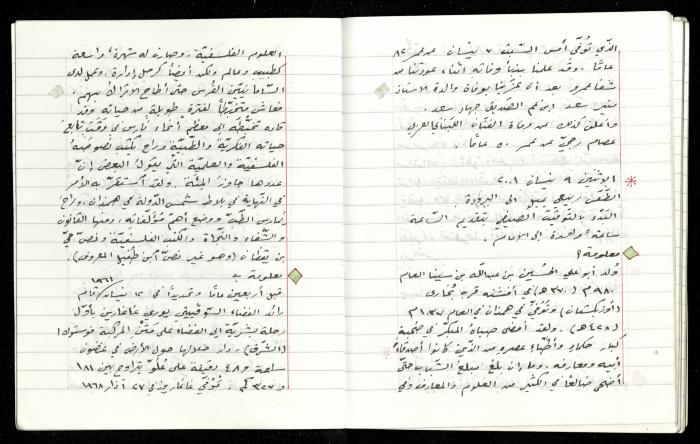 الذي توفي أمس السبت ٧ نيسان عن عمر ٨٢
عامًا. وقد علمنا بنبأ وفاته أثناء عودتنا من
شفاعمرو بعد أن عزّينا بوفاة والدة الأستاذ
منير سعد ابن عم الصديق جهاد سعد.
وأعلن كذلك عن وفاة الفنان اللبناني العربي
عصام رجّي عن عمر ٥٠ عامًا.
* الاثنين ٩ نيسان ٢٠٠١
الطقس ربيعي يميل الى البرودة
البدء بالتوقيت الصيفي بتقديم الساعة
ساعة واحدة الى الأمام.
معلومة أ
وُلد أبو علي الحُسَين بن عبدالله بن سينا العام
٩٨٠م (٣٧٠هـ) في أفشنة قرب بُخارى
(أوزبكستان) وتُوفّي في همذان في العام ١٠٣٧م
(٤٢٨هـ). ولقد أمضى صباه المبكّر في صحبة
كبار علماء وأطبّاء عصره من الذين كانوا أصدقاء
أبيه ومعارفه. وما ان بلغ مبلغ الشباب حتّى
أضحى ضالعًا في الكثير من العلوم والمعارف وفي
العلوم الفلسفيّة، وصارت له شهرة واسعة
كطبيب وعالم ولكن أيضًا كرجل إدارة، وعمل لدى
السّامانيين الفُرس حتى أطاح الأتراك بهم.
فعاش متخبّطًا لفترة طويلة من حياته وقد
قاده تخبّطه إلى معظم أنحاء فارس في وقت تابع
حياته الفكريّة والطّبيّة وراح يكتب نصوصه
الفلسفيّة والعلميّة التي يقول البعض إنّ
عددها جاوز المئة. ولقد استقرّ به الأمر
في النهاية في بلاط شمس الدولة في همذان، وراح
يُمارس الطبّ ووضع أهم مؤلفاته، ومنها القانون
والشّفاء والنّجاة، والكتب الفلسفيّة ونصّ حيّ
بن يقظان (وهو غير نصّ ابن طُفيل المعروف).
معلومة ب
١٩٦١
قبل أربعين عامًا وتحديدًا في ١٢ نيسان قام
رائد الفضاء السوڤييتي يوري غاغارين بأوّل
رحلة بشريّة الى الفضاء على متن المركبة فوستوك ١
(الشرق). دار خلالها حول الأرض في غضون
ساعة و ٤٨ دقيقة على علُوّ يتراوح بين ١٨١
و ٣٢٧ كم. تُوفّي غاغارين في ٢٧ آذار ١٩٦٨